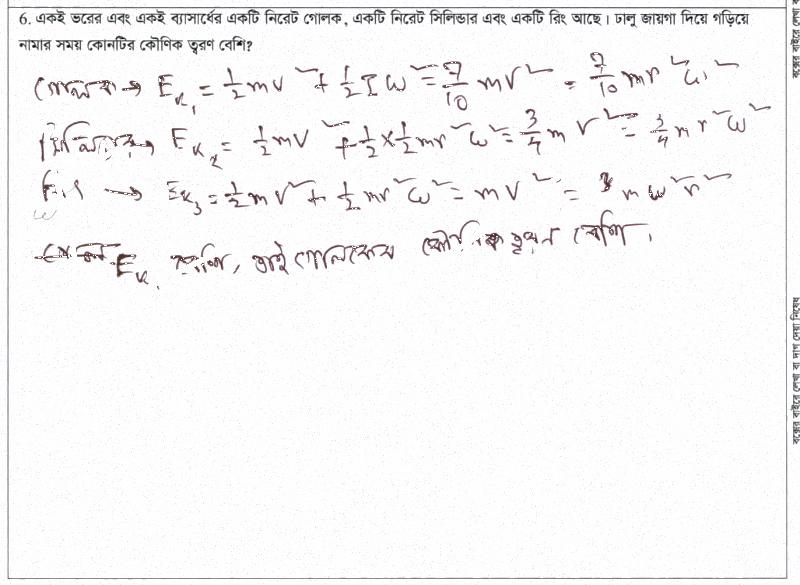 6. একই ভরের এবং একই ব্যাসার্ধের একটি নিরেট গোলক, একটি নিরেট সিলিন্ডার এবং একটি রিং আছে। ঢালু জায়গা দিয়ে গড়িয়ে
নামার সময় কোনটির কৌণিক ত্বরণ বেশি?
গোলক → E_{k_1} = 1/2 mv² + 1/2 Iω² = 7/10 mv² = 7/10 mr²ω²
সিলিন্ডার → E_{k_2} = 1/2 mv² + 1/2 × 1/2 mr²ω² = 3/4 mv² = 3/4 mr²ω²
রিং → E_{k_3} = 1/2 mv² + 1/2 mr²ω² = mv² = mω²r²
E_k বেশি, তাই গোলকের কৌণিক ত্বরণ বেশি।
বক্সের বাইরে লেখা ব
বক্সের বাইরে লেখা বা দাগ দেয়া নিষেধ